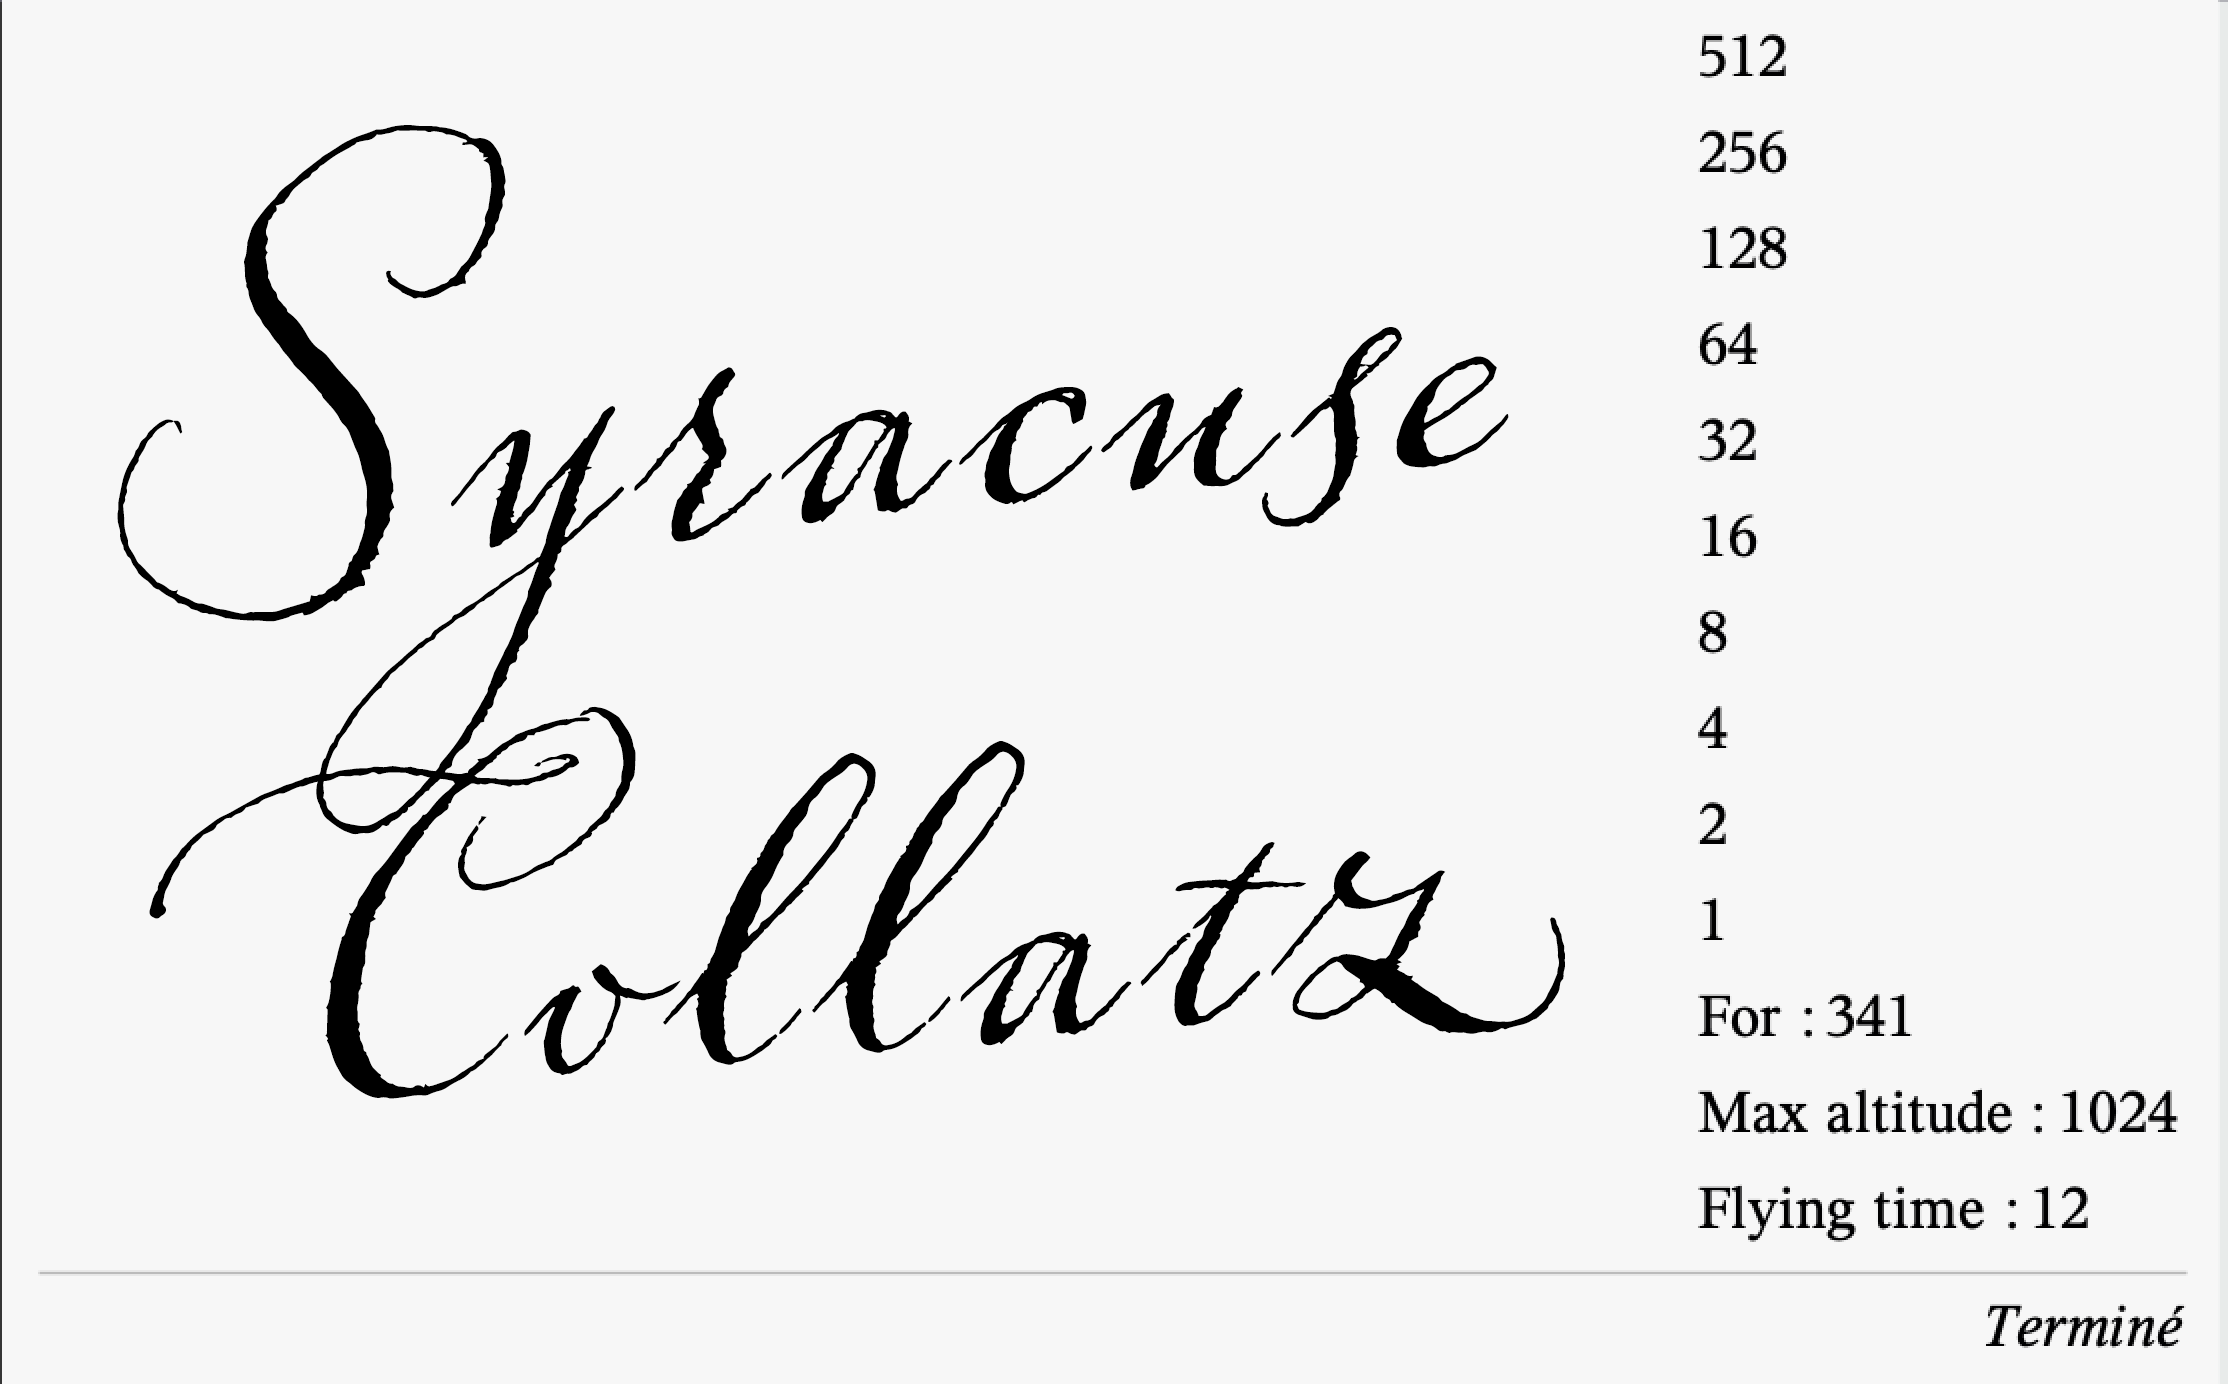 Syracuse
Collatz
512
256
128
64
32
16
8
4
2
1
For : 341
Max altitude : 1024
Flying time : 12
Terminé